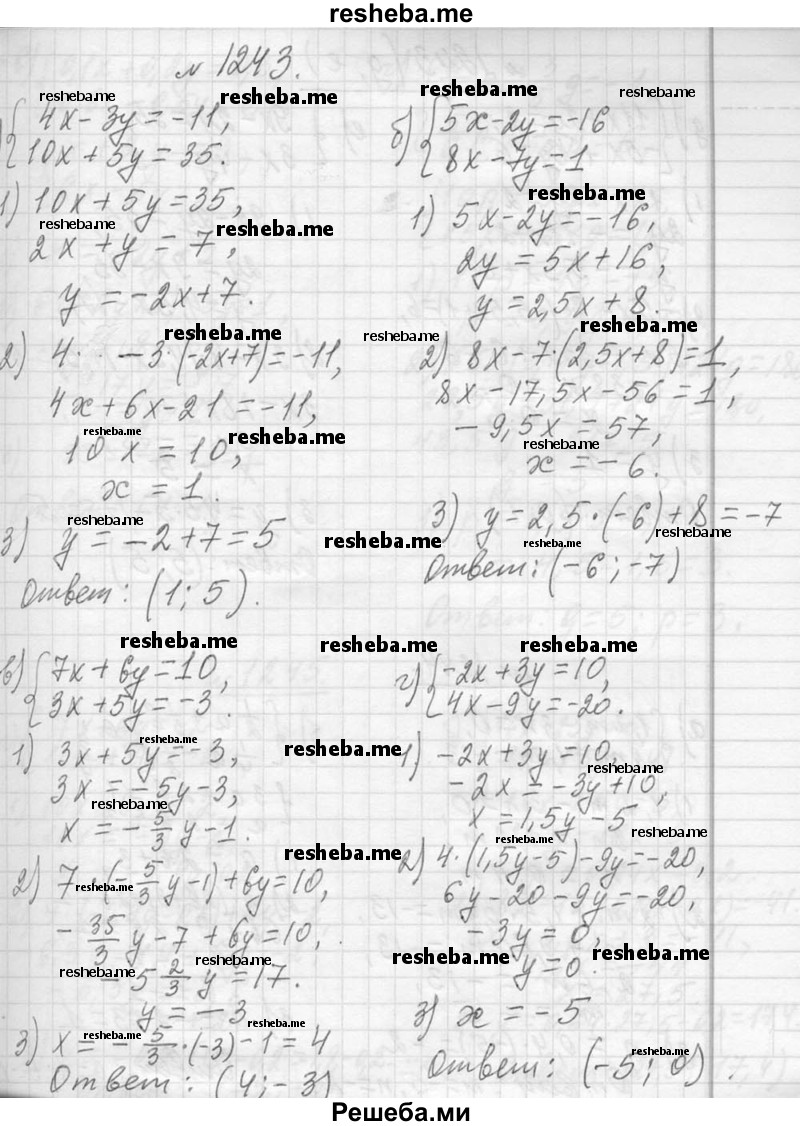 resheba.me
№ 1243.
resheba.me resheba.me resheba.me resheba.me
{ 4x - 3y = -11,
10x + 5y = 35.
1) 10x + 5y = 35,
resheba.me resheba.me
2x + y = 7,
y = -2x + 7.
resheba.me
2) 4· - 3·(-2x+7) = -11,
4x + 6x - 21 = -11,
resheba.me resheba.me
10x = 10,
x = 1.
resheba.me
3) y = -2 + 7 = 5
resheba.me
Ответ: (1; 5).
б) { 5x - 2y = -16
8x - 7y = 1
resheba.me
1) 5x - 2y = -16,
2y = 5x + 16,
y = 2,5x + 8.
resheba.me resheba.me
2) 8x - 7·(2,5x+8) = 1,
8x - 17,5x - 56 = 1,
-9,5x = 57,
resheba.me
x = -6.
3) y = 2,5·(-6) + 8 = -7
resheba.me
resheba.me
Ответ: (-6; -7)
resheba.me resheba.me resheba.me
в) { 7x + 6y = 10,
3x + 5y = -3.
resheba.me
1) 3x + 5y = -3,
resheba.me
3x = -5y - 3,
resheba.me
x = -5/3 y - 1.
resheba.me
2) 7·(-5/3 y - 1) + 6y = 10,
resheba.me
-35/3 y - 7 + 6y = 10,
resheba.me resheba.me
-5 2/3 y = 17.
y = -3
resheba.me
3) x = -5/3·(-3) - 1 = 4
resheba.me
Ответ: (4; -3)
г) { -2x + 3y = 10,
4x - 9y = -20.
1) -2x + 3y = 10,
resheba.me
-2x = -3y + 10,
x = 1,5y - 5
resheba.me
resheba.me
2) 4·(1,5y-5) - 9y = -20,
6y - 20 - 9y = -20,
-3y = 0,
resheba.me resheba.me
y = 0.
3) x = -5
resheba.me
Ответ: (-5; 0).
Решеба.ми